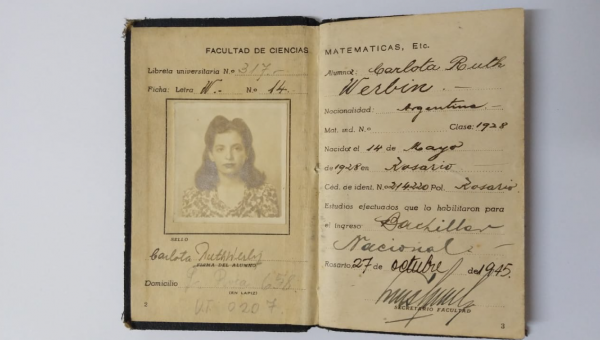 FACULTAD DE CIENCIAS MATEMATICAS, Etc.
Libreta universitaria N.o 317.-
Ficha: Letra W.- N.o 14.-
SELLO
Carlota Ruth Werbin
FIRMA DEL ALUMNO
Domicilio
(EN LAPIZ)
2
Alumno: Carlota Ruth
Werbin.-
Nacionalidad: Argentina.-
Mat. ind. N.o Clase: 1928
Nacido el 14 de Mayo
de 1928 en Rosario
Céd. de ident. N.o 314.220 Pol. Rosario
Estudios efectuados que lo habilitaron para
el ingreso: Bachiller
Nacional.-
Rosario, 27 de octubre de 1945.
SECRETARIO FACULTAD
3